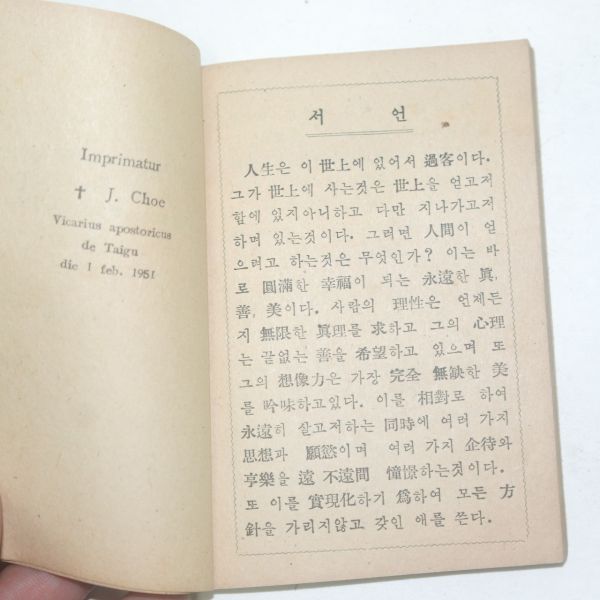 Imprimatur
† J. Choe
Vicarius apostoricus
de Taigu
die 1 feb. 1951
서 언
人生은 이 世上에 있어서 過客이다.
그가 世上에 사는것은 世上을 얻고저
함에 있지아니하고 다만 지나가고저
하며 있는것이다. 그려면 人間이 얻
으려고 하는것은 무엇인가? 이는 바
로 圓滿한 幸福이 되는 永遠한 眞,
善, 美이다. 사람의 理性은 언제든
지 無限한 眞理를 求하고 그의 心理
는 끝없는 善을 希望하고 있으며 또
그의 想像力은 가장 完全 無缺한 美
를 吟味하고있다. 이를 相對로 하여
永遠히 살고저하는 同時에 여러 가지
思想과 願慾이며 여러 가지 企待와
享樂을 遠 不遠間 憧憬하는것이다.
또 이를 實現化하기 爲하여 모든 方
針을 가리지않고 갖인 애를 쓴다.